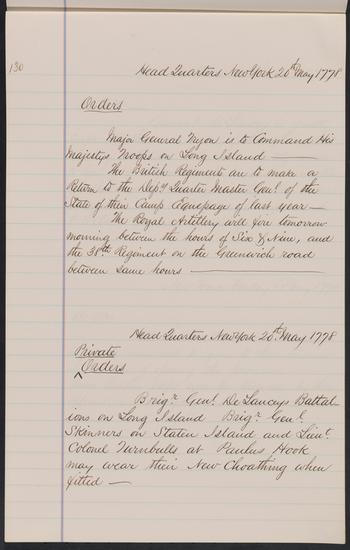 130
Head Quarters New York 20th May 1778
Orders
Major General Tryon is to Command His
Majestys Troops on Long Island —
The British Regiments are to make a
Return to the Depy Quarter Master Genl. of the
State of their Camp Equepage of last year —
The Royal Artillery will fire tomorrow
morning between the hours of Six & Nine, and
the 38th Regiment on the Greenwich road
between same hours —
Head Quarters New York 20th. May 1778
Private
^ Orders
Brigr. Genl. De Lanceys Battal
ions on Long Island Brigr. Genl.
Skinners on Staten Island and Lieut.
Colonel Turnbulls at Paulus Hook
may wear their New Cloathing when
fitted —